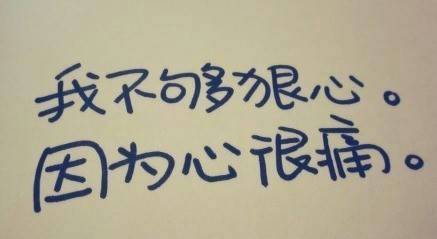 我不够狠心。
因为心很痛。